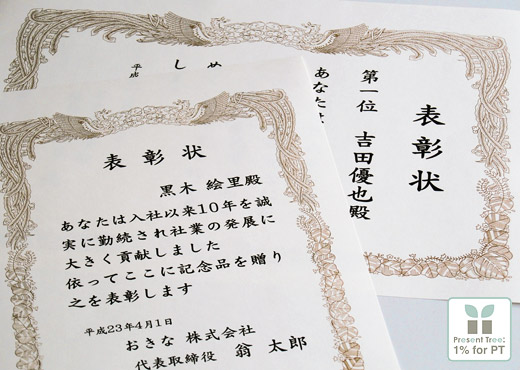 表彰状
黒木 絵里殿
あなたは入社以来10年を誠
実に勤続され社業の発展に
大きく貢献しました
依ってここに記念品を贈り
之を表彰します
平成23年4月1日
おきな 株式会社
代表取締役 翁 太郎
表彰状
第一位 吉田優也殿
あなたは
し
平成
Present Tree
1% for PT